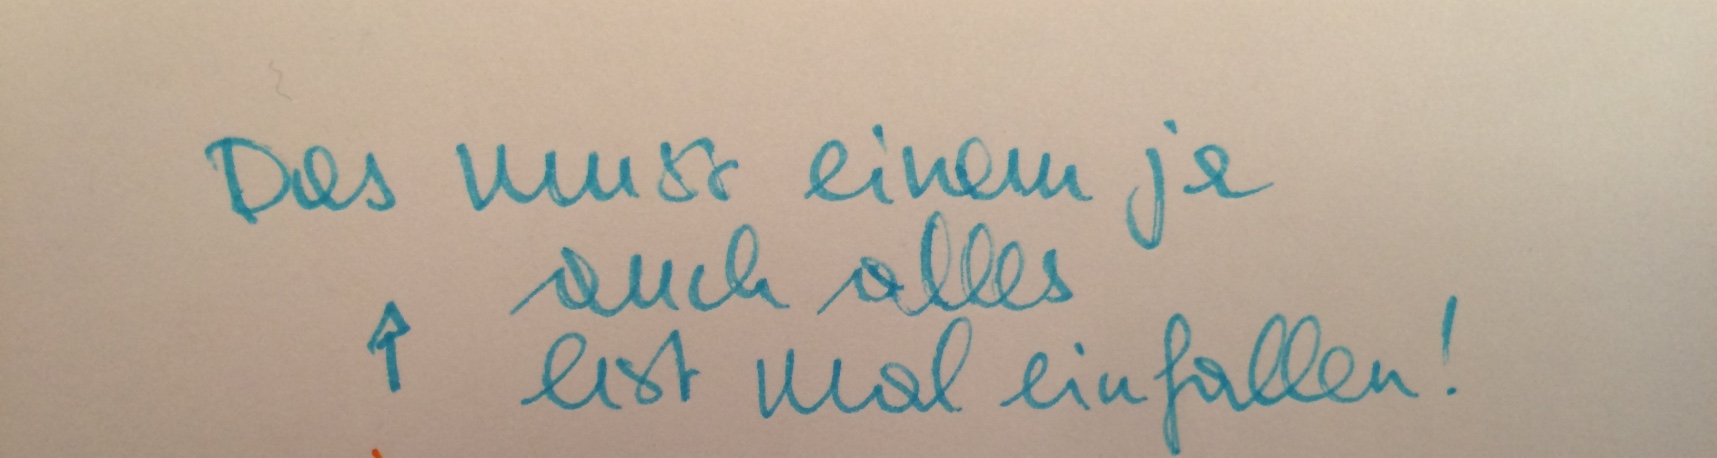 Das muss einem ja
auch alles
erst mal einfallen!